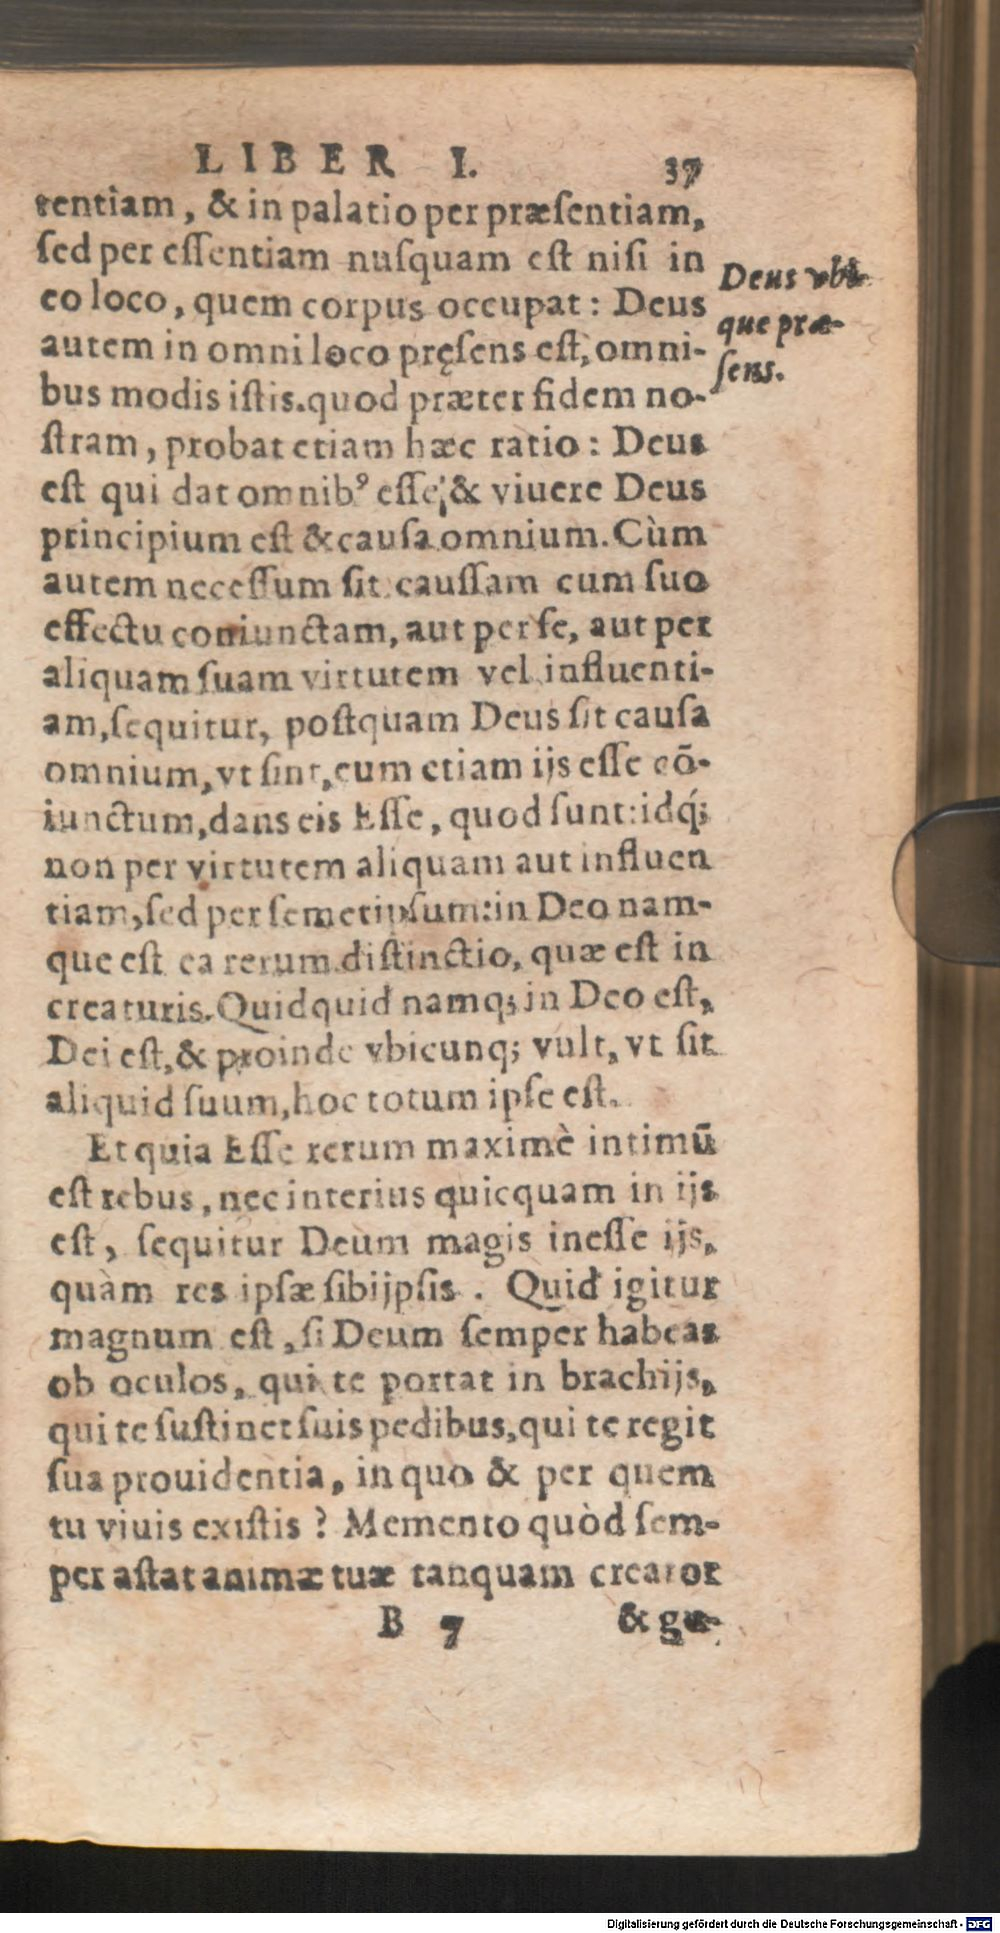 LIBER I. 37
tentiam, & in palatio per præſentiam,
ſed per eſſentiam nuſquam eſt niſi in
eo loco, quem corpus occupat: Deus
autem in omni loco pręſens eſt, omni-
bus modis iſtis. quod præter fidem no-
ſtram, probat etiam hæc ratio: Deus
eſt qui dat omnibꝰ eſſe, & viuere Deus
principium eſt & cauſa omnium. Cùm
autem neceſſum ſit cauſſam cum ſuo
effectu coniunctam, aut per ſe, aut per
aliquam ſuam virtutem vel influenti-
am, ſequitur, poſtquam Deus ſit cauſa
omnium, vt ſint, cum etiam ijs eſſe cō-
iunctum, dans eis Eſſe, quod ſunt: idq́;
non per virtutem aliquam aut influen
tiam, ſed per ſemetipſum: in Deo nam-
que eſt ea rerum diſtinctio, quæ eſt in
creaturis. Quidquid namq; in Deo eſt,
Dei eſt, & proinde vbicunq; vult, vt ſit
aliquid ſuum, hoc totum ipſe eſt.
Et quia Eſſe rerum maximè intimū
eſt rebus, nec interius quicquam in ijs
eſt, ſequitur Deum magis ineſſe ijs,
quàm res ipſæ ſibijpſis. Quid igitur
magnum eſt, ſi Deum ſemper habeas
ob oculos, qui te portat in brachijs,
qui te ſuſtinet ſuis pedibus, qui te regit
ſua prouidentia, in quo & per quem
tu viuis exiſtis? Memento quòd ſem-
per aſtat animæ tuæ tanquam creator
B 7 & gu-
Deus vbi-
que præ-
ſens.
Digitalisierung gefördert durch die Deutsche Forschungsgemeinschaft - DFG